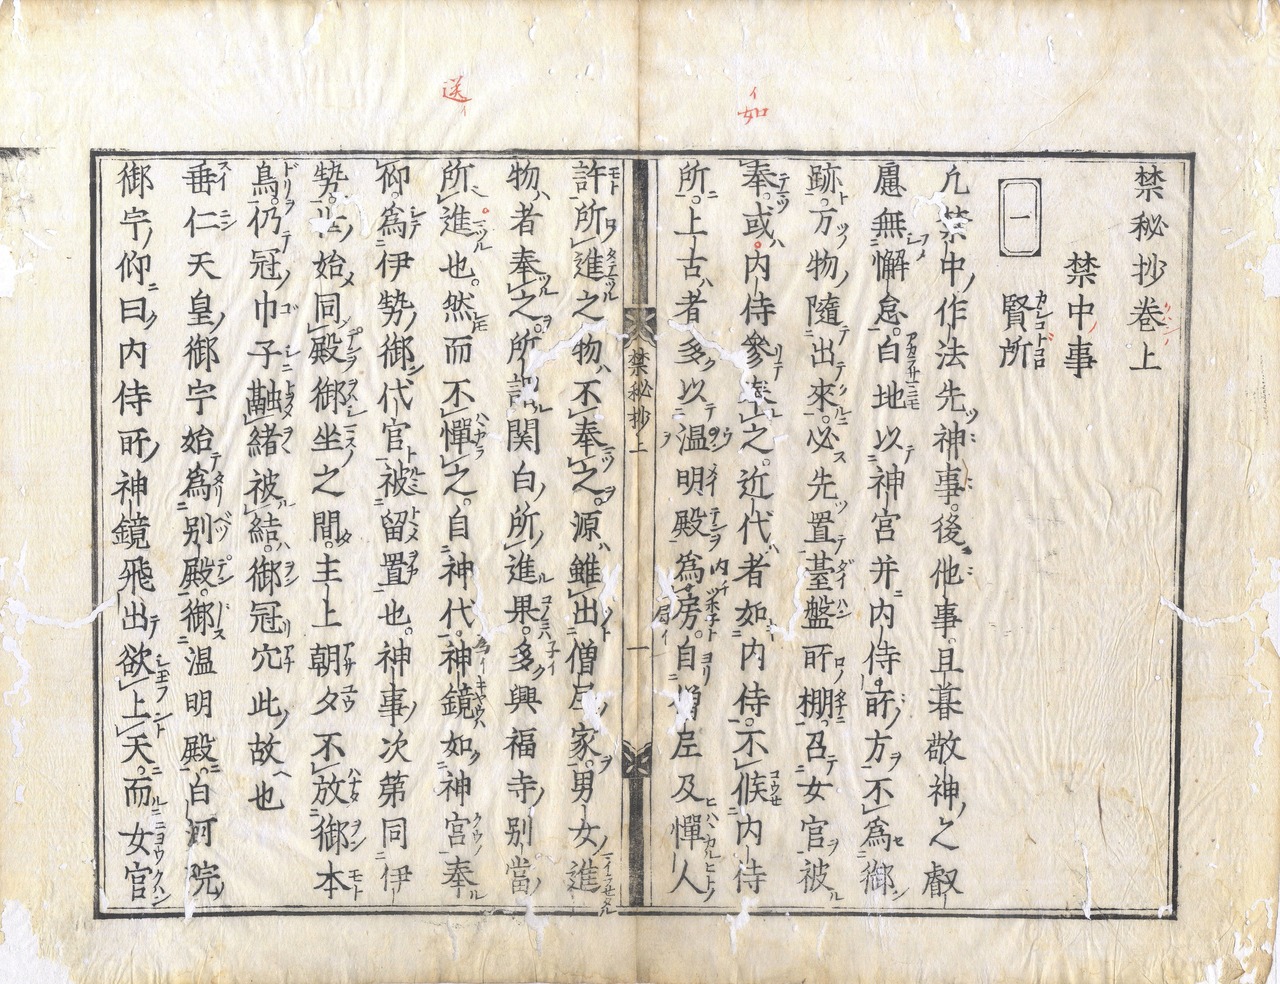 禁秘抄巻上
禁中事
一
賢所
凡禁中作法先神事後他事且暮敬神之叡
慮無懈怠白地以神宮并内侍所方不為御
跡万物随出来必先置台盤所棚召女官被
奉或内侍参 之近代者如内侍不候内侍
所上古者多以温明殿為房自僧尼及憚人
許所進之物不奉之源雖出僧尼家男女進
物者奉之所 関白所進果多興福寺別當
所進也然而不憚之自神代神鏡如神宮奉
仰為伊勢御代官被留置也神事次第同伊
勢 始同殿御坐之間主上朝夕不放御本
鳥仍冠巾子融緒被結御冠穴此故也
垂仁天皇御宇始為別殿御温明殿白河院
御宇仰曰内侍所神鏡飛出欲上天而女官
禁秘抄上
一
如イ
送イ